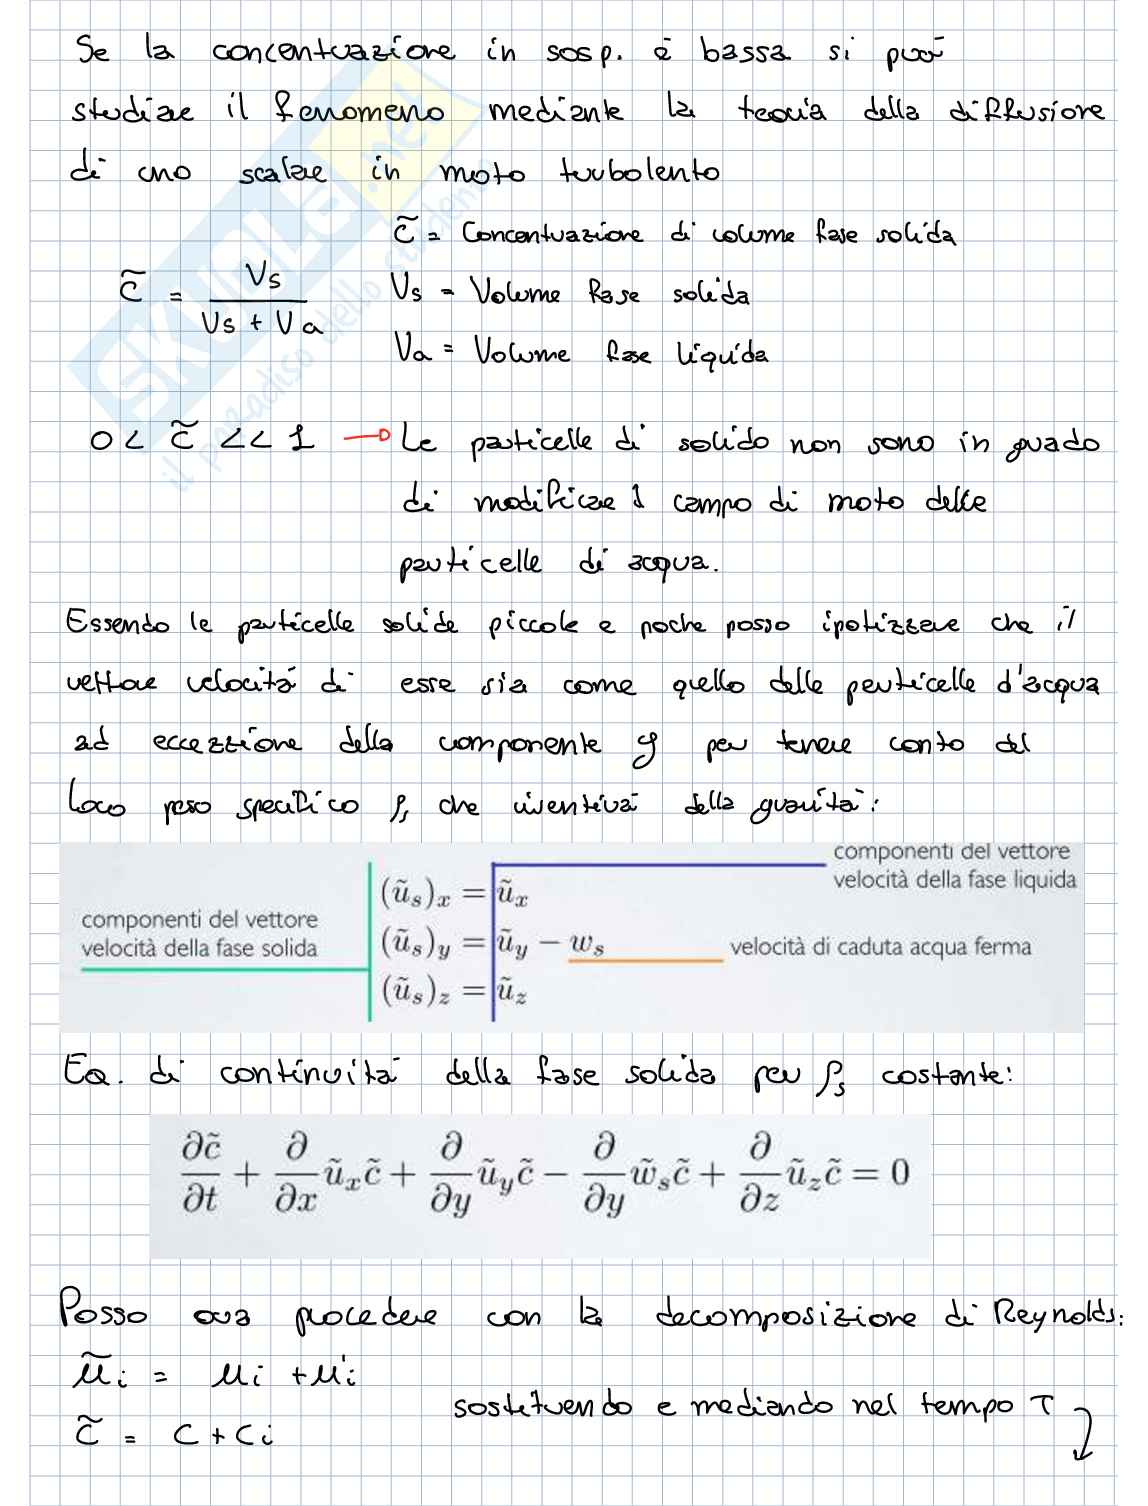 Se la concentrazione in sosp. è bassa si può
studiare il fenomeno mediante la teoria della diffusione
di uno scalare in moto turbolento
c̃ = Concentrazione di volume fase solida
c̃ = Vs / (Vs + Va)
Vs = Volume fase solida
Va = Volume fase liquida
0 < c̃ << 1 → Le particelle di solido non sono in grado
di modificare il campo di moto delle
particelle di acqua.
Essendo le particelle solide piccole e poche posso ipotizzare che il
vettore velocità di esse sia come quello delle particelle d'acqua
ad eccezzione della componente y per tenere conto del
loro peso specifico ρs che risentirà della gravità:
componenti del vettore
velocità della fase liquida
componenti del vettore
velocità della fase solida
(ũs)x = ũx
(ũs)y = ũy − ws
velocità di caduta acqua ferma
(ũs)z = ũz
Eq. di continuità della fase solida per ρs costante:
∂c̃/∂t + ∂/∂x ũx c̃ + ∂/∂y ũy c̃ − ∂/∂y w̃s c̃ + ∂/∂z ũz c̃ = 0
Posso ora procedere con la decomposizione di Reynolds:
ũi = ui + u'i
sostituendo e mediando nel tempo T
c̃ = c + ci
SKUOLA.net
il paradiso dello studente